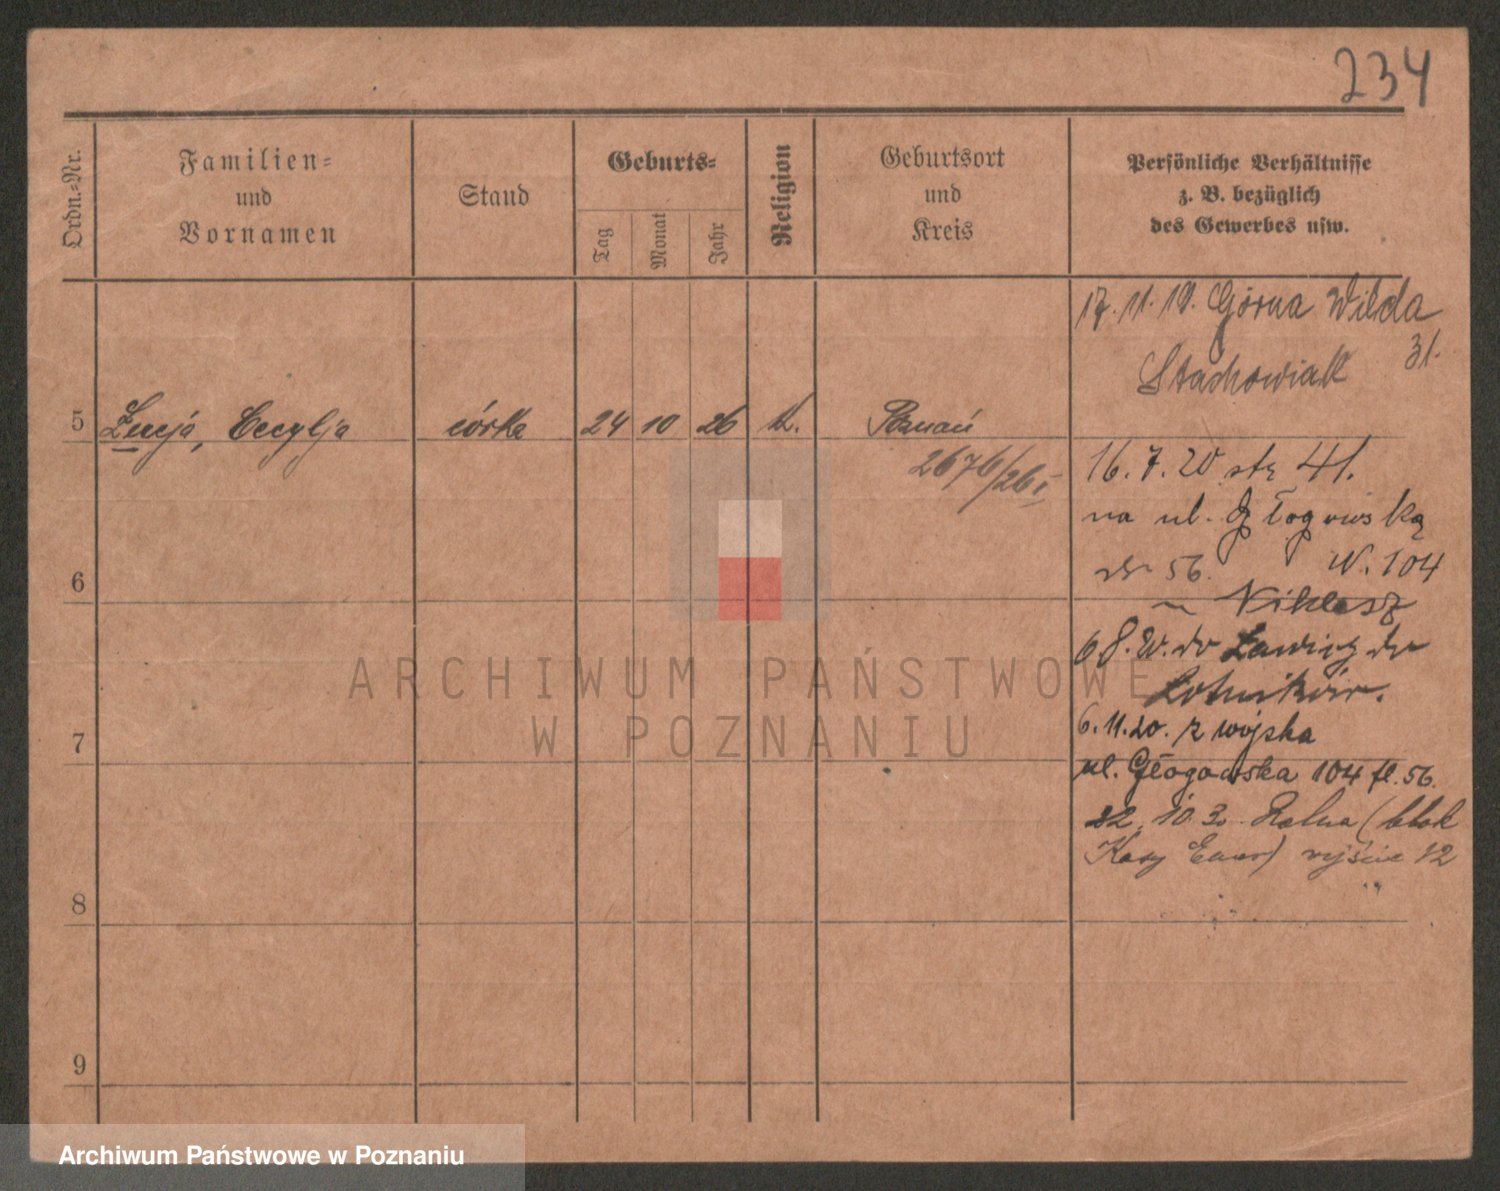 234
Ordn.-Nr.
Familien-
und
Vornamen
Stand
Geburts-
Tag
Monat
Jahr
Religion
Geburtsort
und
Kreis
Persönliche Verhältnisse
z. B. bezüglich
des Gewerbes usw.
17. 11. 19. Górna Wilda
31.
Stachowiak
5 Łucja, Cecylja córka 24 10 26 k. Poznań
2676/26 I
16. 7. 20 str 41.
na ul. Głogowską
56. N. 104
Niklasz
6 do Ławicy do
Lotników.
7
6. 11. 20. z wojska
ul. Głogowska 104 fl. 56.
22. 10. 30. Rolna (blok
Kasy Emer) wejście 12
8
9
ARCHIWUM PAŃSTWOWE
W POZNANIU
Archiwum Państwowe w Poznaniu